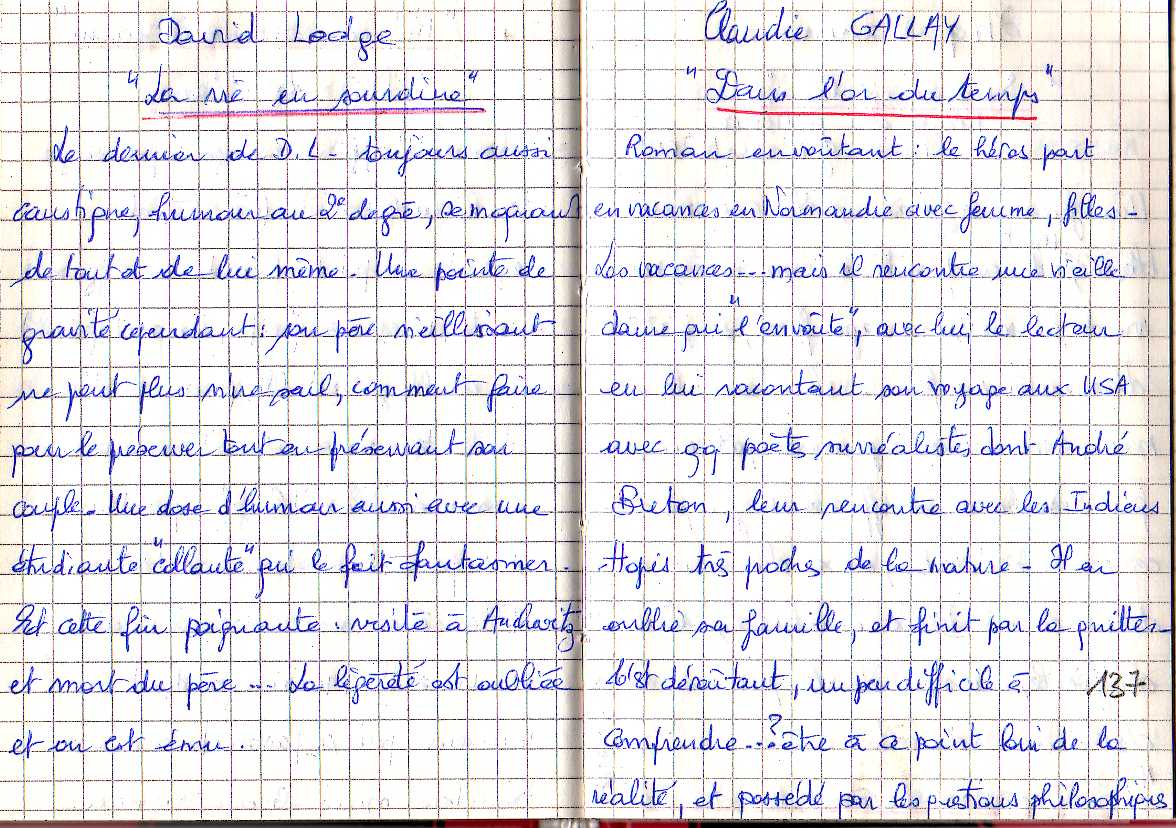 David Lodge
"La vie en sourdine"
Le dernier de D.L - toujours aussi
caustique, humour au 2e degré, se moquant
de tout et de lui même. Une pointe de
gravité cependant : son père vieillissant
ne peut plus vivre seul, comment faire
pour le préserver tout en préservant son
couple. Une dose d'humour aussi avec une
étudiante "collante" qui le fait fantasmer.
Et cette fin poignante : visite à Auchwitz
et mort du père ... La légèreté est oubliée
et on est ému.
Claudie GALLAY
"Dans l'or du temps"
Roman envoûtant : le héros part
en vacances en Normandie avec femme, filles -
Les vacances ... mais il rencontre une vieille
dame qui "l'envoûte", avec lui, le lecteur
en lui racontant son voyage aux USA
avec qq poètes surréalistes, dont André
Breton, leur rencontre avec les Indiens
Hopis très proches de la nature - Il en
oublie sa famille, et finit par la quitter -
C'est déroutant, un peu difficile à
137
comprendre ...? être à ce point loin de la
réalité, et possédé par les questions philosophiques